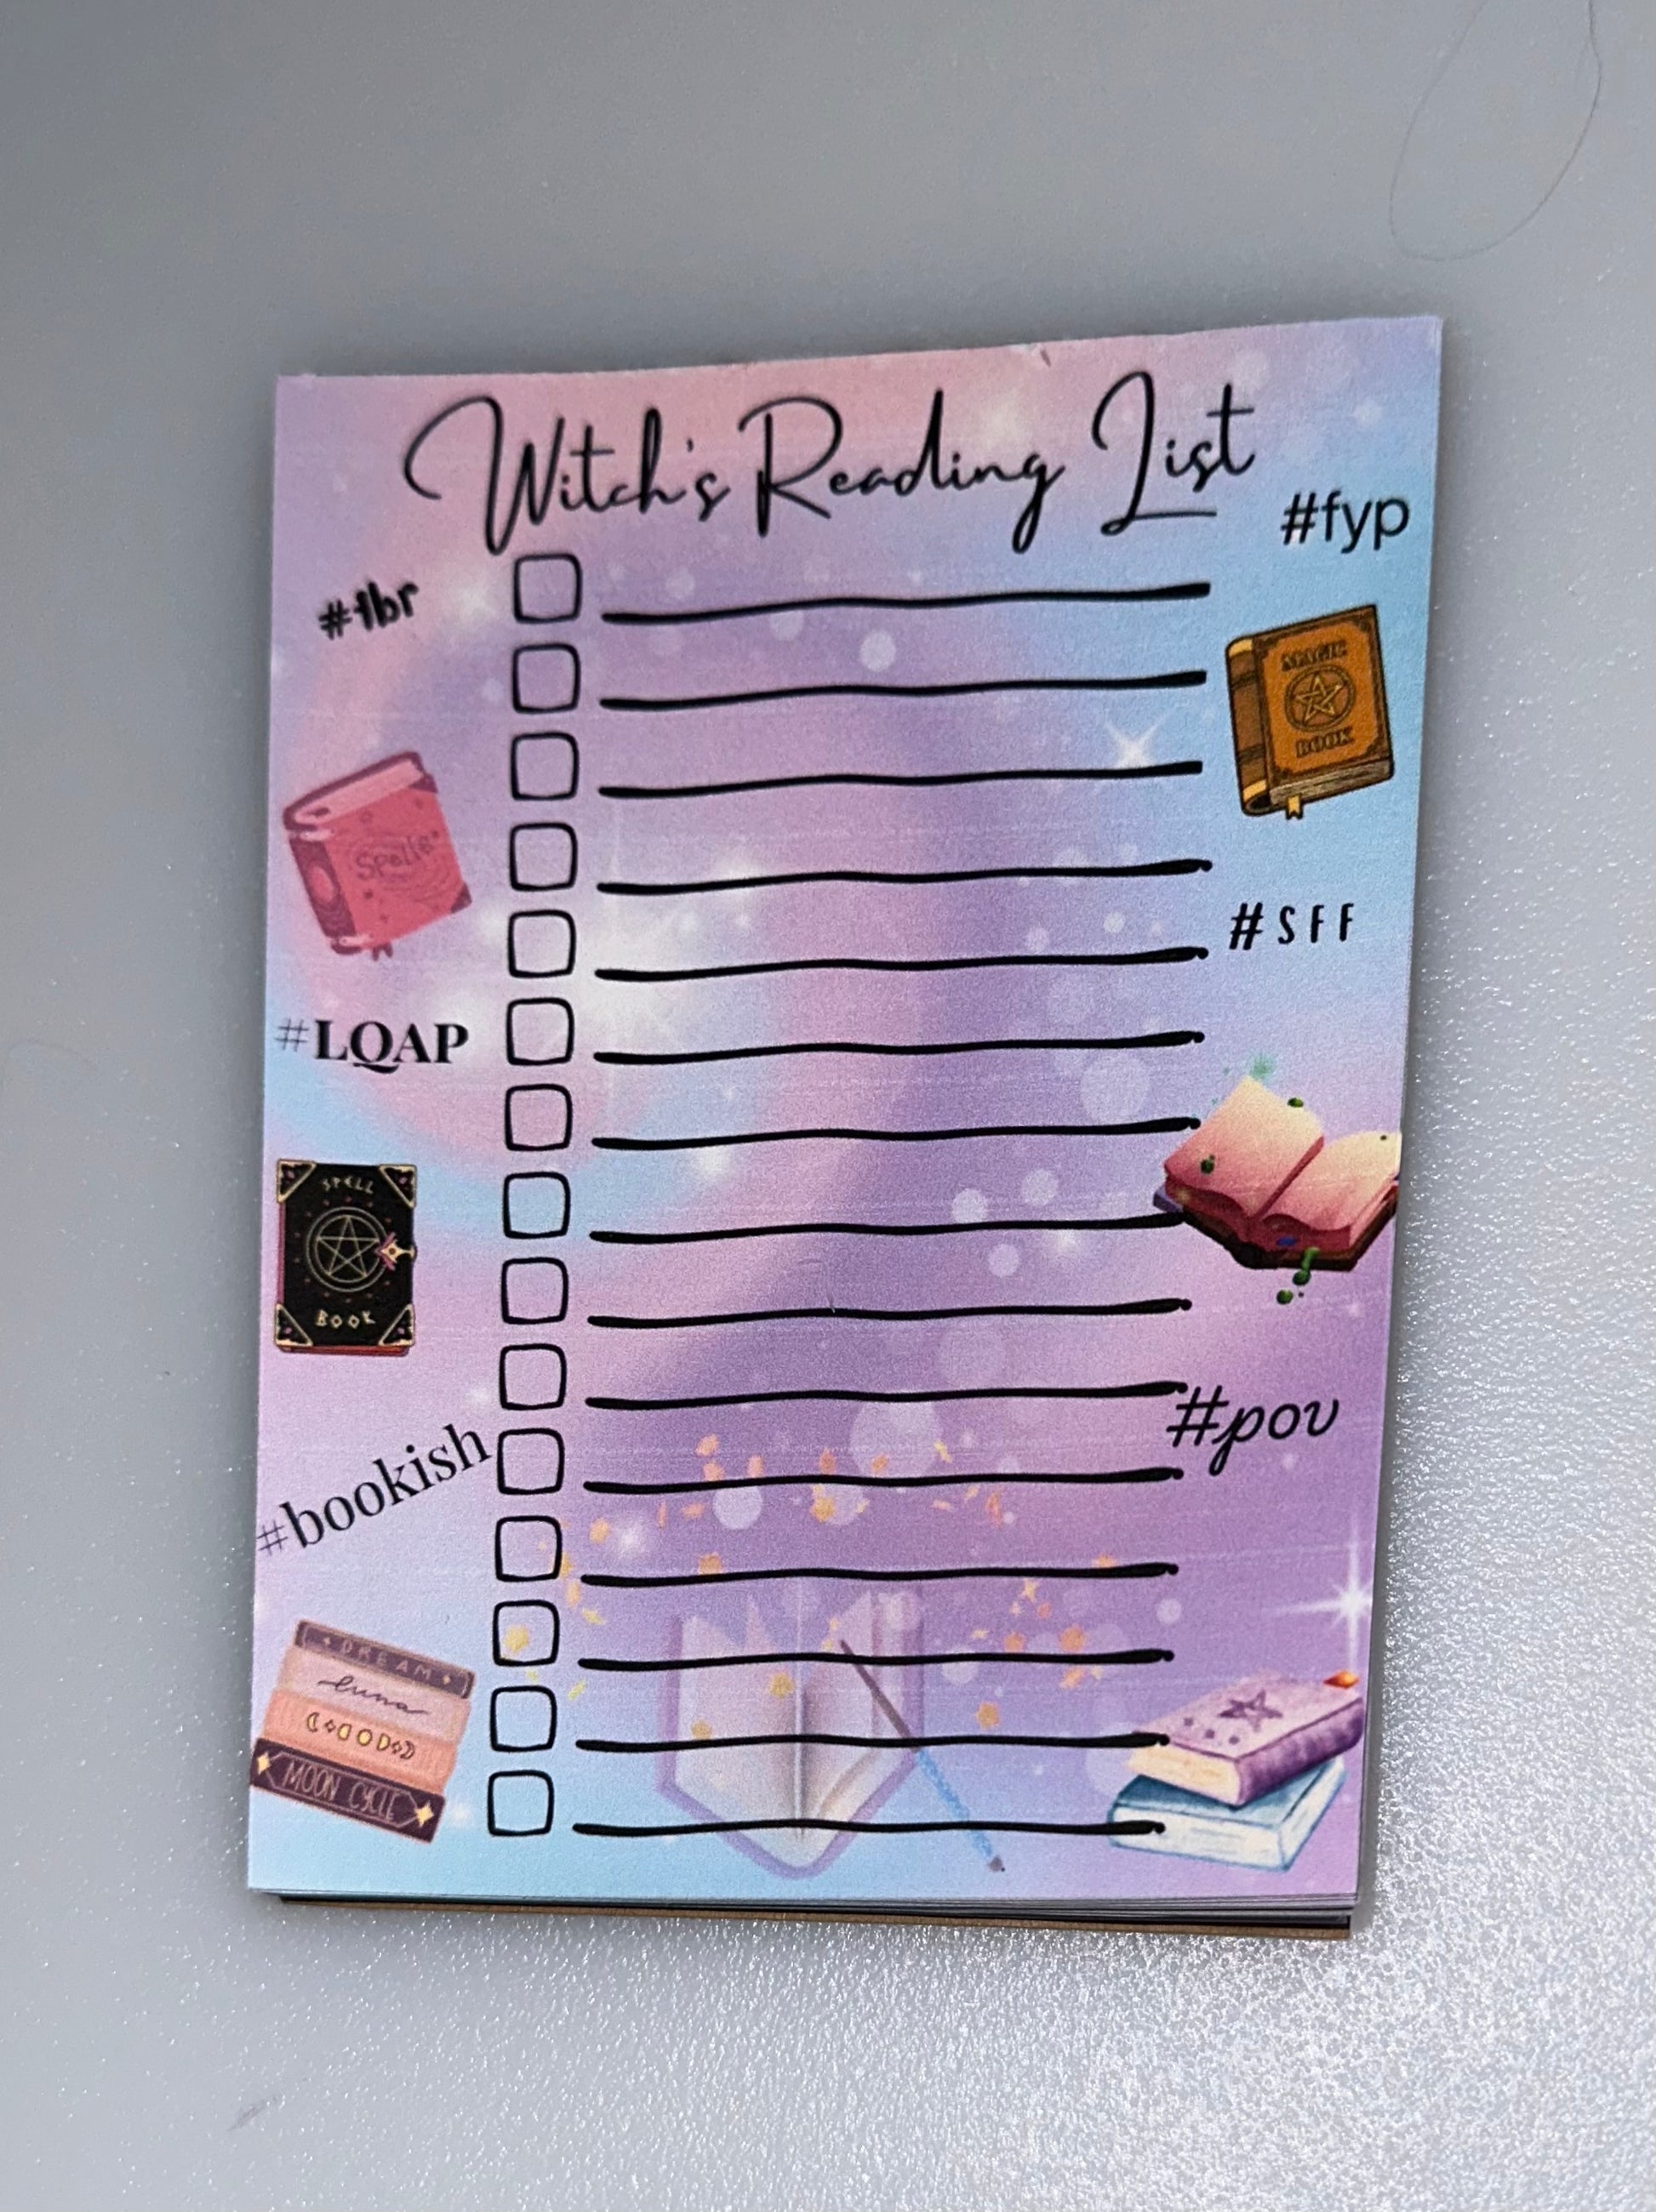 Witch's Reading List
#fyp
#tbr
MAGIC
BOOK
Spells
#SFF
#LQAP
SPELL
BOOK
#pov
#bookish
DREAM
luna
MOON CYCLE